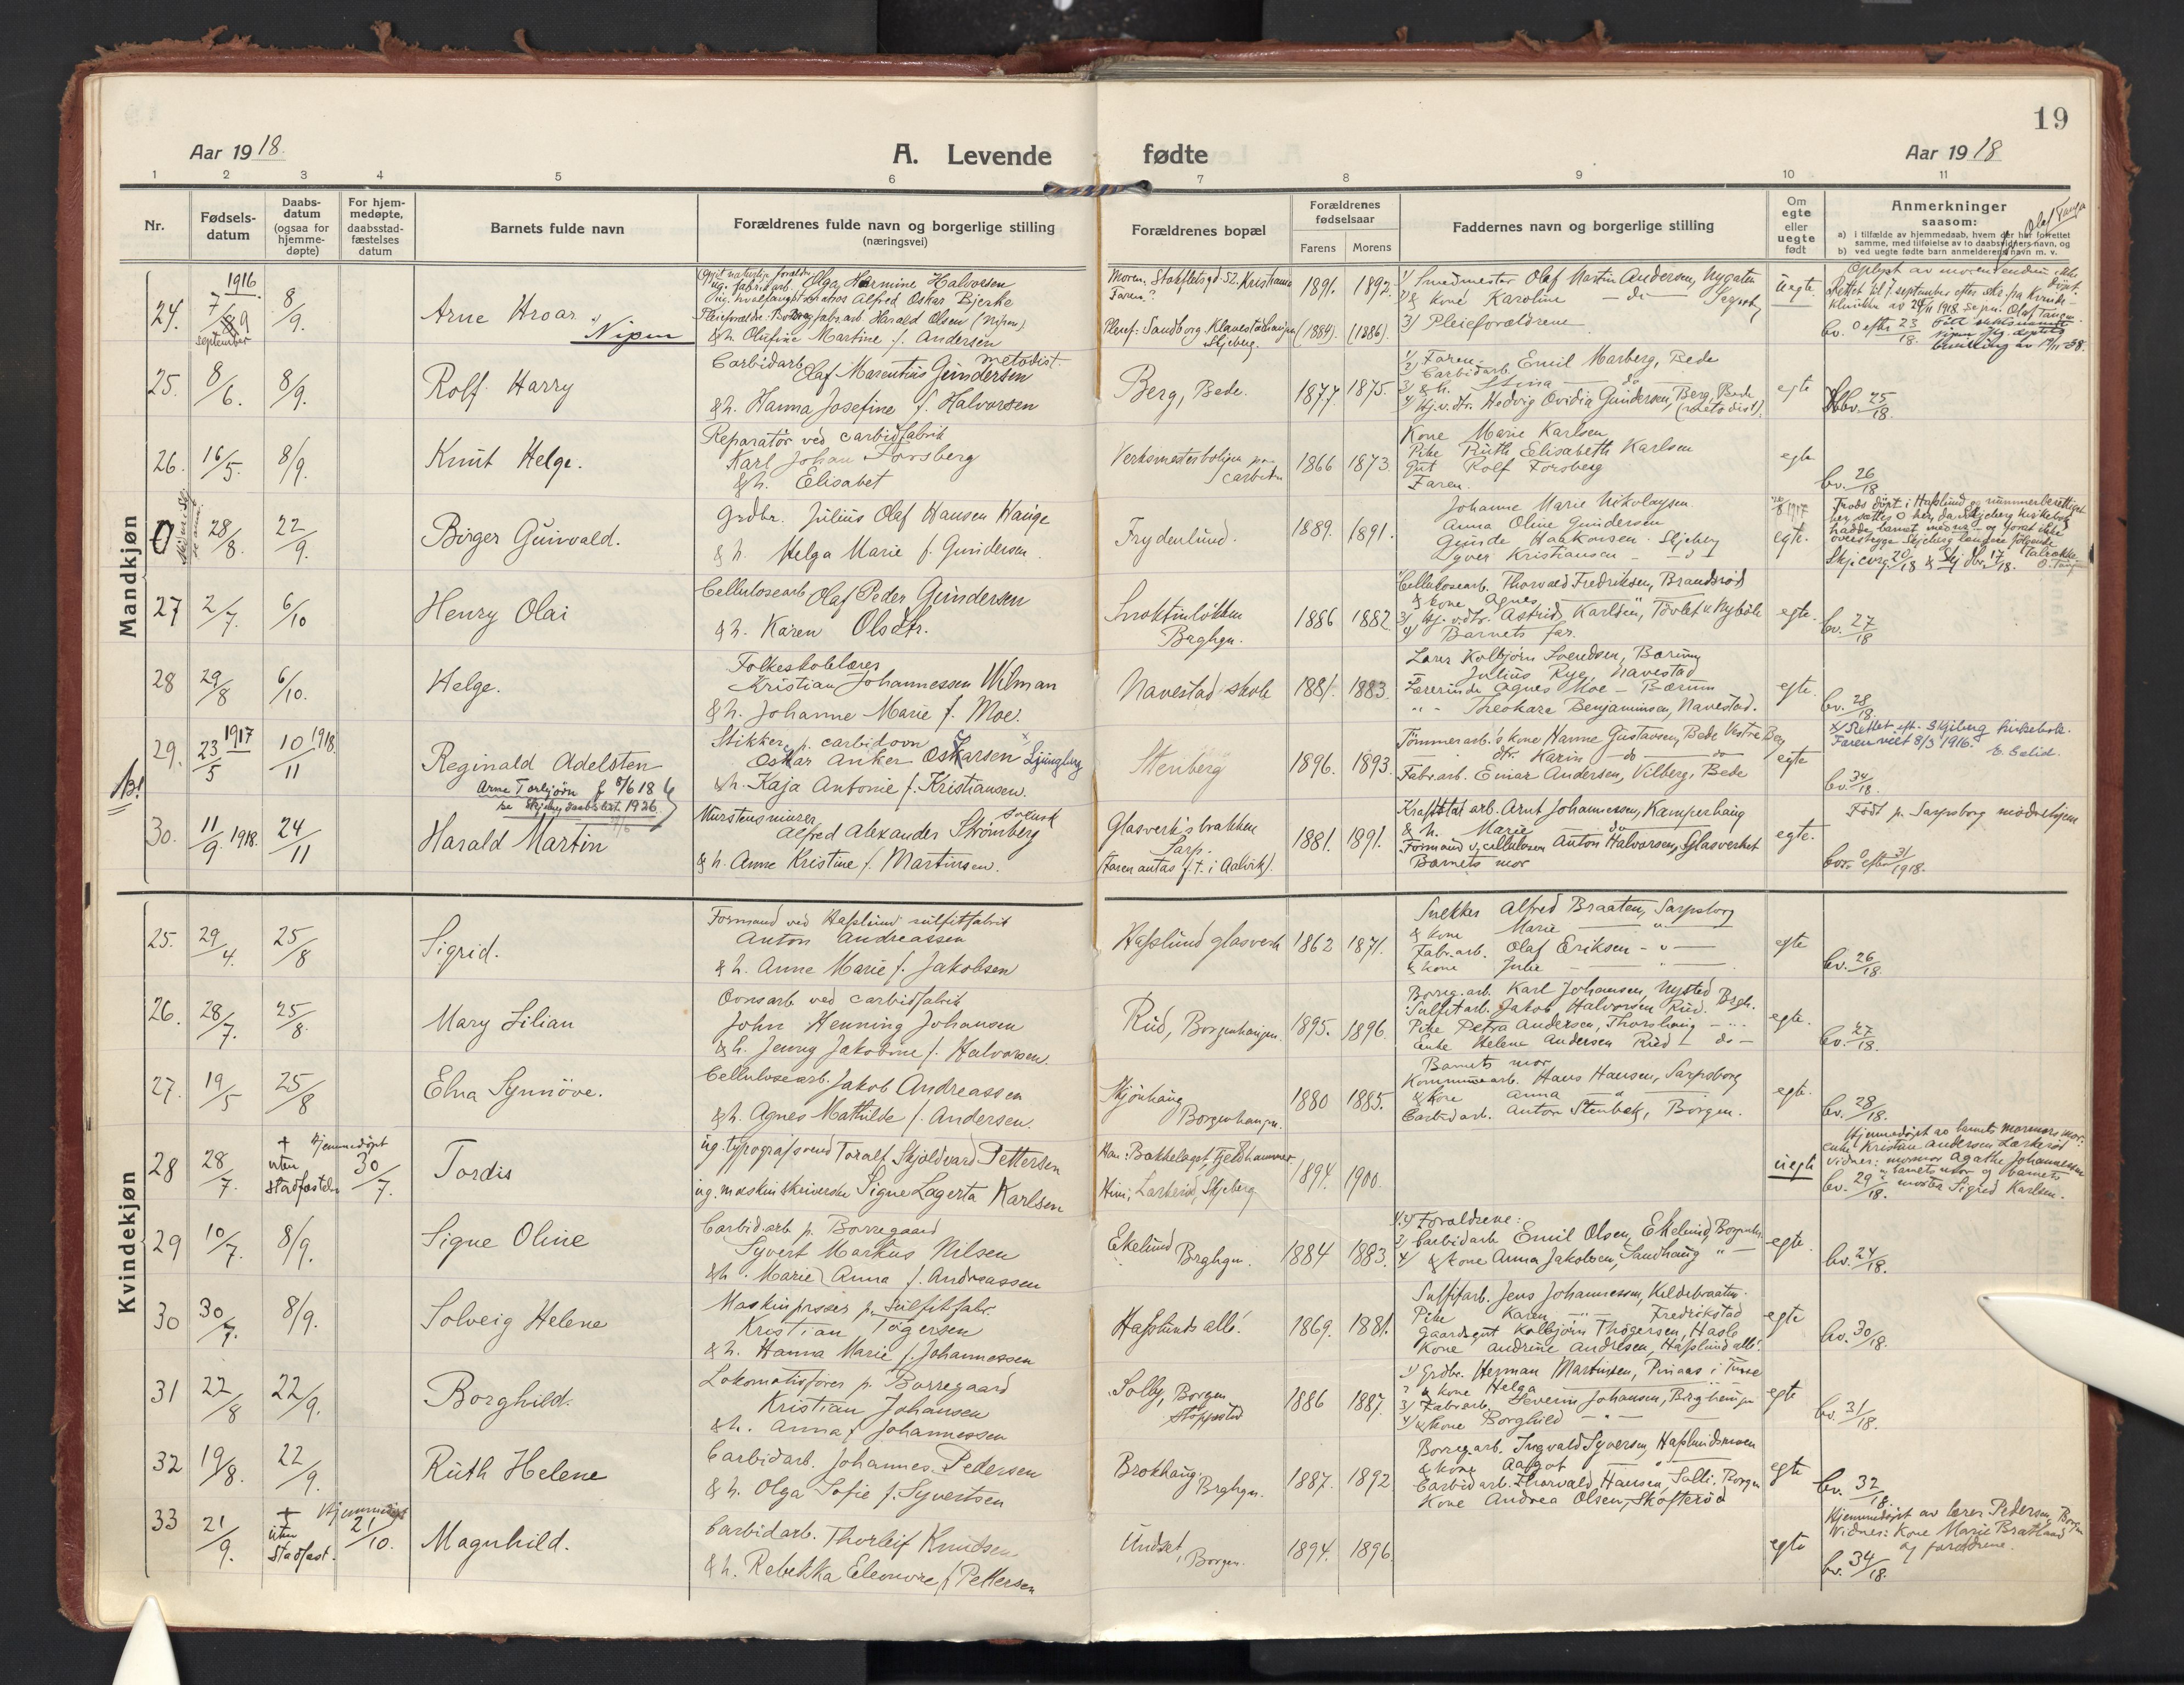 19
Aar 1918.
A. Levende fødte
Aar 1918
1 2 3 4 5 6 7 8 9 10 11
Nr.
Fødsels-
datum
Daabs-
datum
(ogsaa for
hjemme-
døpte)
For hjem-
medøpte,
daabsstad-
fæstelses
datum
Barnets fulde navn
Forældrenes fulde navn og borgerlige stilling
(næringsvei)
Forældrenes bopæl
Forældrenes
fødselsaar
Farens Morens
Faddernes navn og borgerlige stilling
Om
egte
eller
uegte
født
Anmerkninger
saasom:
a) i tilfælde av hjemmedaab, hvem der har forrettet
samme, med tilføielse av to daabsvidners navn, og
b) ved uegte fødte barn anmelderens navn m. v.
Olaf Tangen
Mandkjøn
24.
1916
7/9
september
8/9.
Arne Hroar
Nipen
ug. fabrikarb. Olga Hermine Halvorsen
Alfred Oskar Bjerke
Pleieforældre: Borreg. fabr.arb. Harald Olsen (Nipen)
& h. Olufine Martine f. Andersen
Moren: Kristiania
Faren: ?
Pleief: Sandborg. Klavestadhaugen
Skjeberg.
1891. 1892.
(1884). (1886).
1) Smedmester Olaf Martin Andersen, Nygaten
2) & kone Karoline — do — Sarpsborg
3) Pleieforældrene
uegte.
25. 8/6. 8/9.
Rolf Harry
Carbidarb. metodist.
Olaf Marentius Gundersen
& h. Hanna Josefine f. Halvorsen
Berg, Bede.
1877. 1875.
1) Faren.
2) Carbidarb. Emil Marberg, Bede
3) & h. Stina — do
4) Hj.v.dtr. Hedvig Ovidia Gundersen, Berg, Bede
(metodist).
egte
bv. 25/18.
26. 16/5. 8/9.
Knut Helge.
Reparatør ved carbidfabrik
Karl Johan Forsberg
& h. Elisabet
Verksmesterboligen
carbiden
1866 1873.
Kone Marie Karlsen
Pike Ruth Elisabeth Karlsen
Gut Rolf Forsberg
Faren.
egte.
bv. 26/18
0 28/8. 22/9.
Birger Gunvald.
Grdbr. Julius Olaf Hansen Hauge
& h. Helga Marie f. Gundersen.
Frydenlund.
1889. 1891.
Johanne Marie Nikolaysen
Anna Oline Gundersen
Gunde Haakonsen. Skjeberg
Syver Kristiansen
egte.
27 2/7. 6/10
Henry Olai
Cellulosearb. Olaf Peder Gundersen
& h. Karen Olsdtr.
Brghgn.
1886 1882.
Cellulosearb. Thorvald Fredriksen, Brandsrød
& kone Agnes "
3) Hj. v. dtr. Astrid Karlsen,
4) Barnets far.
egte.
bv. 27/18
28 29/8 6/10.
Helge.
Folkeskolelærer
Kristian Johannessen Wilman
& h. Johanne Marie f. Moe.
Navestad skole
1881. 1883.
Lærer Kolbjørn Svendsen, Bærum
" Julius Rye, Navestad
Lærerinde Agnes Moe — Bærum
" - Theokare Benjaminsen, Navestad.
egte.
bv. 28/18.
29. 1917 23/5 10/11 1918.
Reginald Adelsten
Arne Torbjørn f 8/6 18
se Skjeberg daabsliste 1926
Stikker p. carbidovn
Oskar Anker Oskarsen Ljungberg
& h. Kaja Antonie f. Kristiansen.
Stenberg
1896. 1893.
Tømmerarb. & kone Hanne Gustavsen, Bede Vestre Berg
dtr. Karin — do — do
Fabr.arb. Einar Andersen, Vilberg, Bede
egte
x/ Rettet eft. Skjeberg kirkebok.
Faren viet 8/3 1916.
bv. 34/18.
30. 11/9. 1918. 24/11
Harald Martin
Murstensmurer svensk
Alfred Alexander Strømberg
& h. Anne Kristine f. Martinsen.
Glasverk's brakken
Sarp.
(Faren antas f.t. i Aalvik).
1881. 1891.
Kraftstat. arb. Arnt Johannessen, Kamperhaug
& h. Marie do
Formand v. cellulosen Anton Halvorsen, Glasverket
Barnets mor
egte.
Født p. Sarpsborg mødrehjem
bv. 0 efter 31/1918.
Kvindekjøn
25. 29/4. 25/8
Sigrid.
Formand ved Hafslund sulfitfabrik
Anton Andreassen
& h. Anne Marie f. Jakobsen
Hafslund glasverk
1862 1871.
Snekker Alfred Braaten, Sarpsborg
& kone Marie — " —
Fabr.arb. Olaf Eriksen - " —
& kone Julie — " —
egte
bv. 26/18.
26. 28/7. 25/8.
Mary Lilian
Ovnsarb ved carbidfabrik
John Henning Johansen
& h. Jenny Jakobine f. Halvorsen.
Rud, Borgenhaugen.
1895. 1896.
Borreg. arb. Karl Johansen, Nysted Brgh.
Sulfitarb. Jakob Halvorsen Rud.
Pike Petra Andersen, Thorshaug — " —
Enke Helene Andersen Rud — do —
egte.
bv. 27/18.
27. 19/5 25/8
Elna Synnöve.
Cellulosearb. Jakob Andreassen
& h. Agnes Mathilde f. Andersen.
Skjönhaug
Borgenhaugen.
1880 1885.
Barnets mor
Kommunearb. Hans Hansen, Sarpsborg
& kone Anna — " —
Carbidarb. Anton Stenbek, Borgen.
egte.
bv. 28/18.
28 28/7. + uten stadfæstelse
Hjemmedøpt 30/7.
Tordis
ug. typografsvend Toralf Skjoldvard Pettersen
ug. maskinskriverske Signe Lagerta Karlsen
Han: Bakkelaget, Fjeldhammer
Hun: Lerkerød, Skjeberg
1894. 1900
uegte
Hjemmedøpt av barnets mormors mor:
enke Kristine Andersen Lerkerød
vidner: mormor Agathe Johannessen
barnets mor og barnets
bv. 29/18. moster Sigrid Karlsen.
29 10/7. 8/9.
Signe Oline
Carbid.arb. p. Borregaard
Syvert Markus Nilsen
& h. Marie Anna f. Andreassen
Ekelund Brghgn.
1884 1883.
1.2) Forældrene:
3) Carbidarb. Emil Olsen, Ekelund, Borgenhg.
4) & kone Anna Jakobsen, Sandhaug " —
egte.
bv. 24/18.
30 30/7. 8/9.
Solveig Helene
Maskinpasser p. sulfitfabr.
Kristian Tögersen
& h. Hanna Marie f. Johannessen
Hafslunds allé.
1869. 1881.
Sulfitarb. Jens Johannessen, Kildebraaten.
Pike Karen — " — Fredrikstad
Gaardsgut Kolbjørn Thøgersen, Hasle
Kone Andrine Andresen, Hafslund allé.
egte
bv. 30/18.
31 27/8 22/9.
Borghild.
Lokomotivfører p. Borregaard
Kristian Johansen
& h. Anna f. Johannessen
Solby, Borgen
stoppested
1886 1887.
1) Grdbr. Herman Martinsen, i Tune
2 & kone Helga
3) Fabr.arb. Severin Johansen, Brghaugen
4) & kone Borghild — " —
egte
bv. 31/18.
32 19/8. 22/9.
Ruth Helene
Carbidarb. Johannes Pedersen
& h. Olga Sofie f. Syvertsen
Brokhaug
Brghgn.
1887. 1892
Borreg.arb. Ingvald Syversen, Hafslundsmoen
& kone Aasgot — " —
Carbidarb. Thorvald Hansen, Solli, Borgen
Kone Andrea Olsen, Skofterød
egte
bv. 32/18.
33 21/9. + uten stadfæst.
Hjemmedøpt 21/10.
Magnhild.
Carbidarb. Thorleif Knudsen
& h. Rebekka Eleonore f. Pettersen
Undset, Borgen.
1894. 1896.
egte
Hjemmedøpt av lærer Pedersen, Borgen
Vidner: Kone Marie Brathaad
og forældrene.
bv. 34/18.